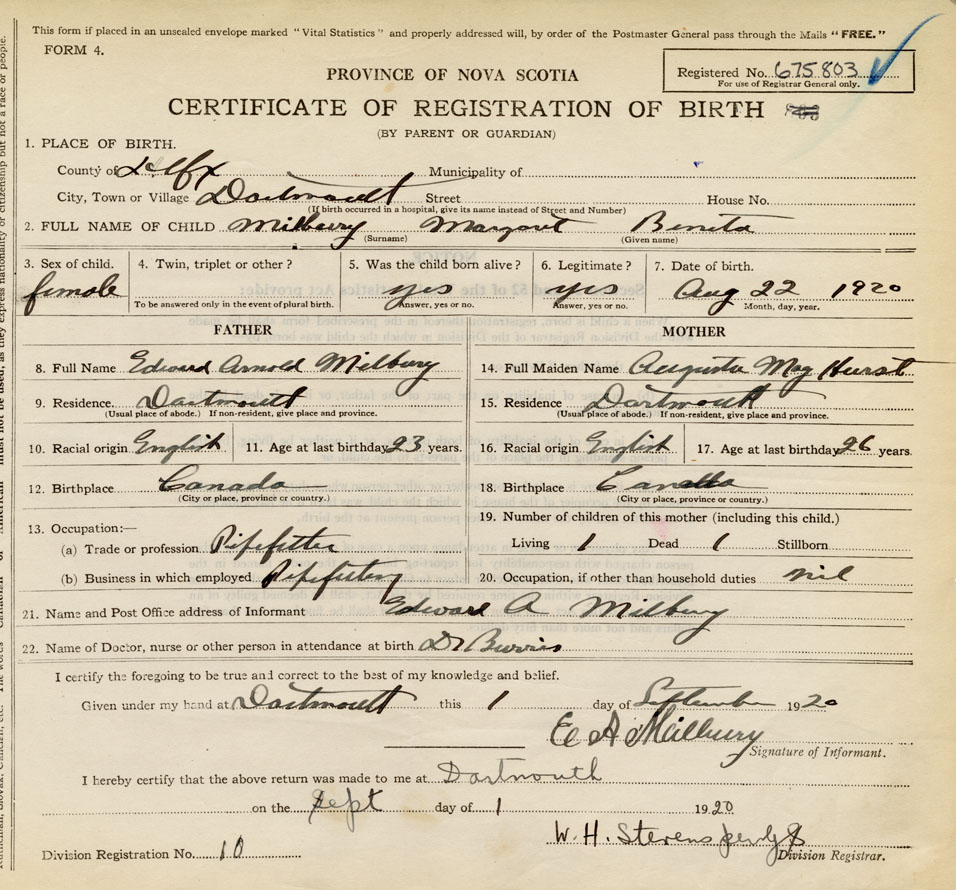 This form if placed in an unsealed envelope marked "Vital Statistics" and properly addressed will, by order of the Postmaster General pass through the Mails "FREE."
FORM 4.
Registered No. 675803
For use of Registrar General only.
PROVINCE OF NOVA SCOTIA
CERTIFICATE OF REGISTRATION OF BIRTH
(BY PARENT OR GUARDIAN)
1. PLACE OF BIRTH.
County of Hfx Municipality of
City, Town or Village Dartmouth Street House No.
(If birth occurred in a hospital, give its name instead of Street and Number)
2. FULL NAME OF CHILD Milbury Margaret Benita
(Surname) (Given name)
3. Sex of child. 4. Twin, triplet or other? 5. Was the child born alive? 6. Legitimate? 7. Date of birth.
female yes yes Aug 22 1920
To be answered only in the event of plural birth. Answer, yes or no. Answer, yes or no. Month, day, year.
FATHER MOTHER
8. Full Name Edward Arnold Milbury 14. Full Maiden Name Augusta May Hurst
9. Residence. Dartmouth 15. Residence Dartmouth
(Usual place of abode.) If non-resident, give place and province. (Usual place of abode.) If non-resident, give place and province.
10. Racial origin English 11. Age at last birthday 23 years. 16. Racial origin English 17. Age at last birthday 26 years.
12. Birthplace Canada 18. Birthplace Canada
(City or place, province or country.) (City or place, province or country.)
13. Occupation:— 19. Number of children of this mother (including this child.)
(a) Trade or profession Pipefitter Living 1 Dead 1 Stillborn
(b) Business in which employed. Pipefitting 20. Occupation, if other than household duties nil
21. Name and Post Office address of Informant Edward A Milbury
22. Name of Doctor, nurse or other person in attendance at birth Dr Burris
I certify the foregoing to be true and correct to the best of my knowledge and belief.
Given under my hand at Dartmouth this 1 day of September 1920
E A Milbury
Signature of Informant.
I hereby certify that the above return was made to me at Dartmouth
on the Sept day of 1 1920
W. H. Stevens
Division Registration No. 10 Division Registrar.